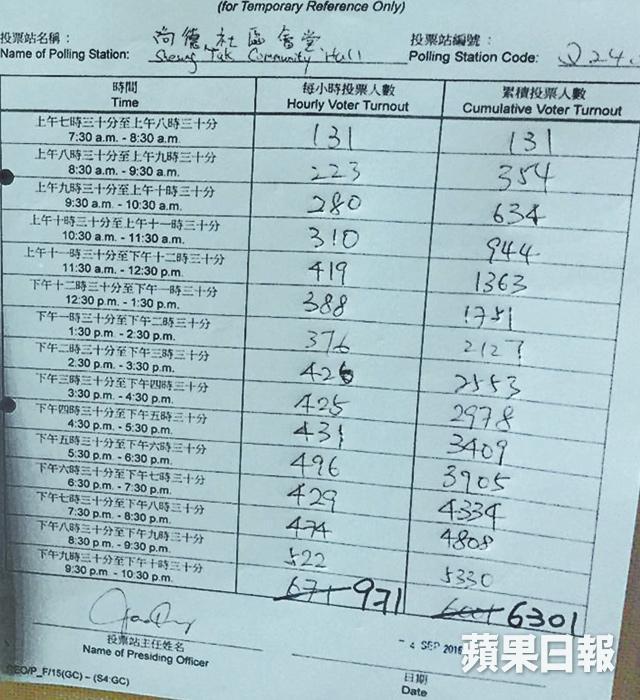 (for Temporary Reference Only)
投票站名稱： 尚德社區會堂 投票站編號：
Name of Polling Station: Sheung Tak Community Hall Polling Station Code: Q24
時間 每小時投票人數 累積投票人數
Time Hourly Voter Turnout Cumulative Voter Turnout
上午七時三十分至上午八時三十分
7:30 a.m. - 8:30 a.m. 131 131
上午八時三十分至上午九時三十分
8:30 a.m. - 9:30 a.m. 223 354
上午九時三十分至上午十時三十分
9:30 a.m. - 10:30 a.m. 280 634
上午十時三十分至上午十一時三十分
10:30 a.m. - 11:30 a.m. 310 944
上午十一時三十分至下午十二時三十分
11:30 a.m. - 12:30 p.m. 419 1363
下午十二時三十分至下午一時三十分
12:30 p.m. - 1:30 p.m. 388 1751
下午一時三十分至下午二時三十分
1:30 p.m. - 2:30 p.m. 376 2127
下午二時三十分至下午三時三十分
2.30 p.m. - 3:30 p.m. 426 2553
下午三時三十分至下午四時三十分
3:30 p.m. - 4:30 p.m. 425 2978
下午四時三十分至下午五時三十分
4:30 p.m. - 5:30 p.m. 431 3409
下午五時三十分至下午六時三十分
5:30 p.m. - 6:30 p.m. 496 3905
下午六時三十分至下午七時三十分
6:30 p.m. - 7:30 p.m. 429 4334
下午七時三十分至下午八時三十分
7:30 p.m. - 8:30 p.m. 474 4808
下午八時三十分至下午九時三十分
8:30 p.m. - 9:30 p.m. 522 5330
下午九時三十分至下午十時三十分
9:30 p.m. - 10:30 p.m. 671 971 6001 6301
投票站主任姓名
Name of Presiding Officer
4 SEP 2016
蘋果日報
日期
Date
EO/P_F/15(GC) – (S4:GC)